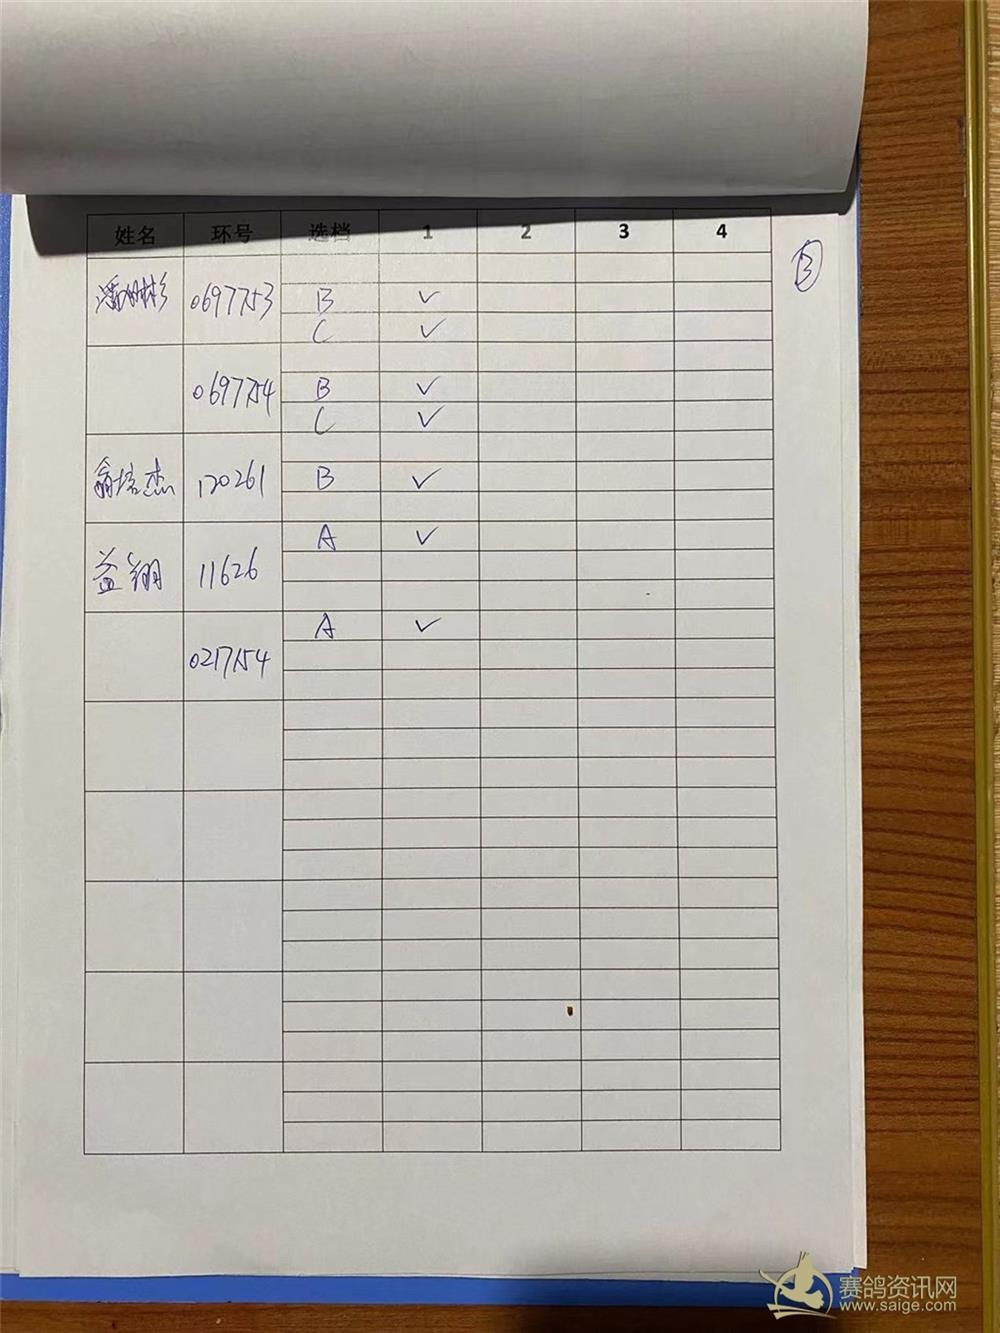 姓名 环号 选档 1 2 3 4
③
0697753 B ✓
C ✓
0697754 B ✓
C ✓
翁培杰 120261 B ✓
益翔 11626 A ✓
0217154 A ✓
赛鸽资讯网
www.saige.com